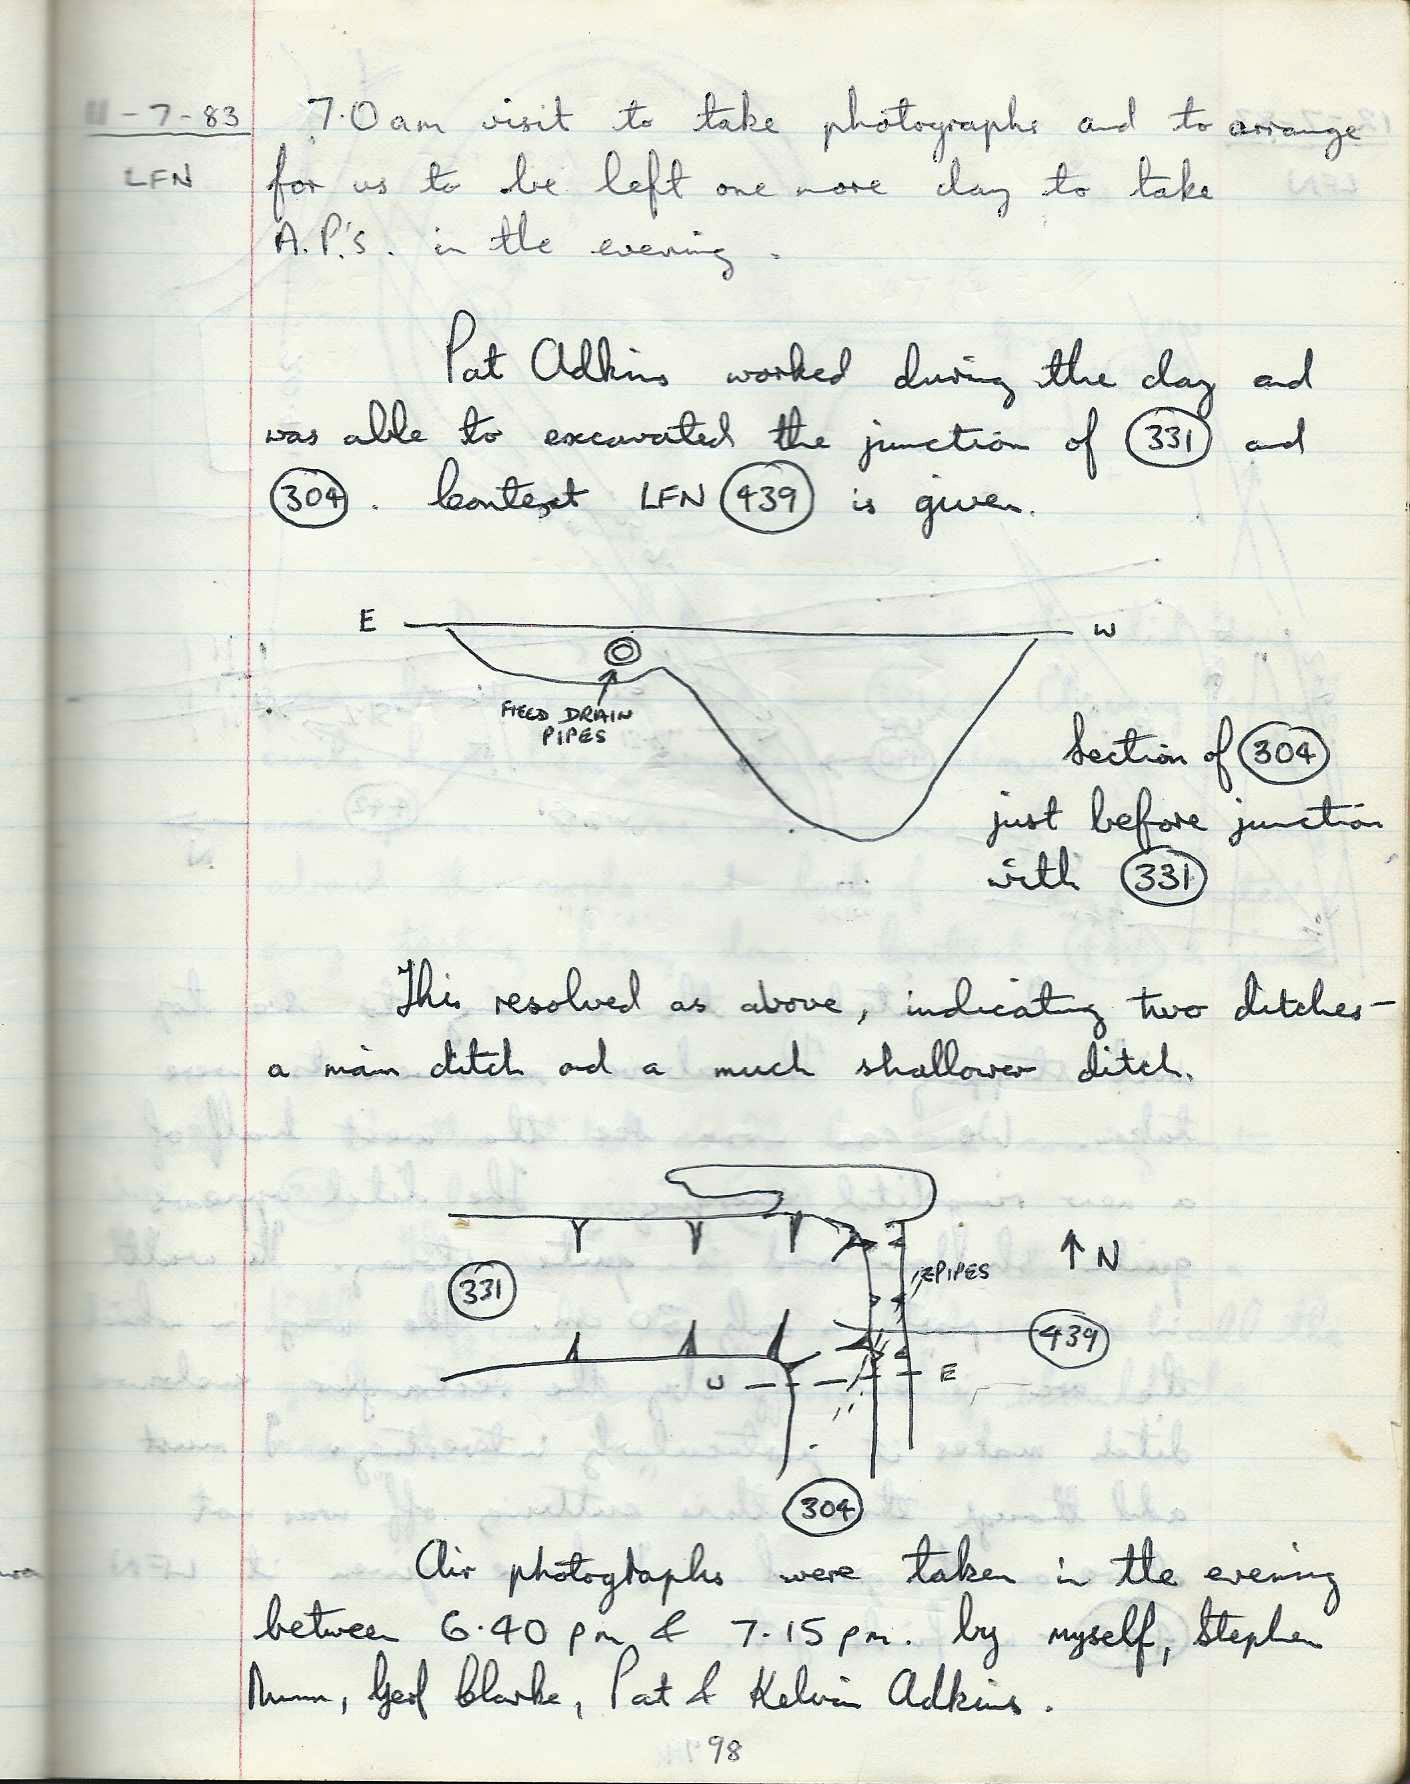 11-7-83 7.0am visit to take photographs and to arrange
LFN for us to be left one more day to take
A.P.'s. in the evening.
Pat Adkins worked during the day and
was able to excavated the junction of 331 and
304. Context LFN 439 is given.
E W
FIELD DRAIN
PIPES
Section of 304
just before junction
with 331
This resolved as above, indicating two ditches-
a main ditch and a much shallower ditch.
N
PIPES
331
439
W E
304
Air photographs were taken in the evening
between 6.40pm & 7.15pm. by myself, Stephen
Nunn, Clarke, Pat & Kelvin Adkins.
98